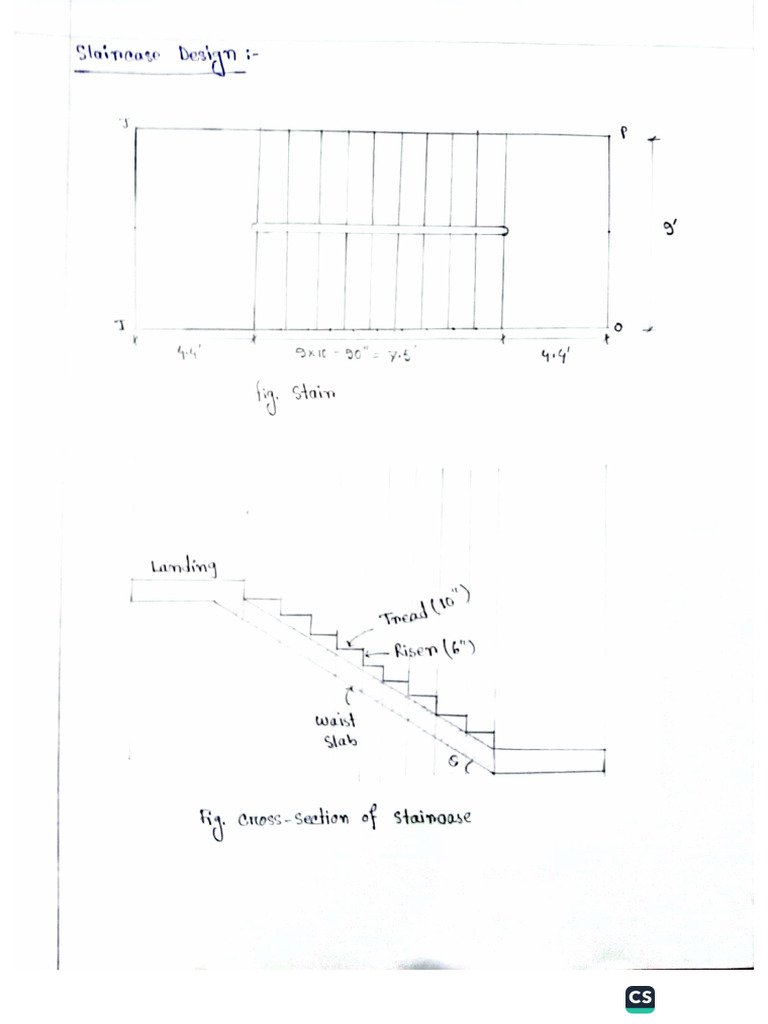 Staircase Design :-
J
P
9'
J
O
4.4'
9x10 - 90" = 7.5'
4.4'
Fig. Stair
Landing
Tread (10")
Riser (6")
Waist
Slab
θ
Fig. Cross-section of staircase
CS